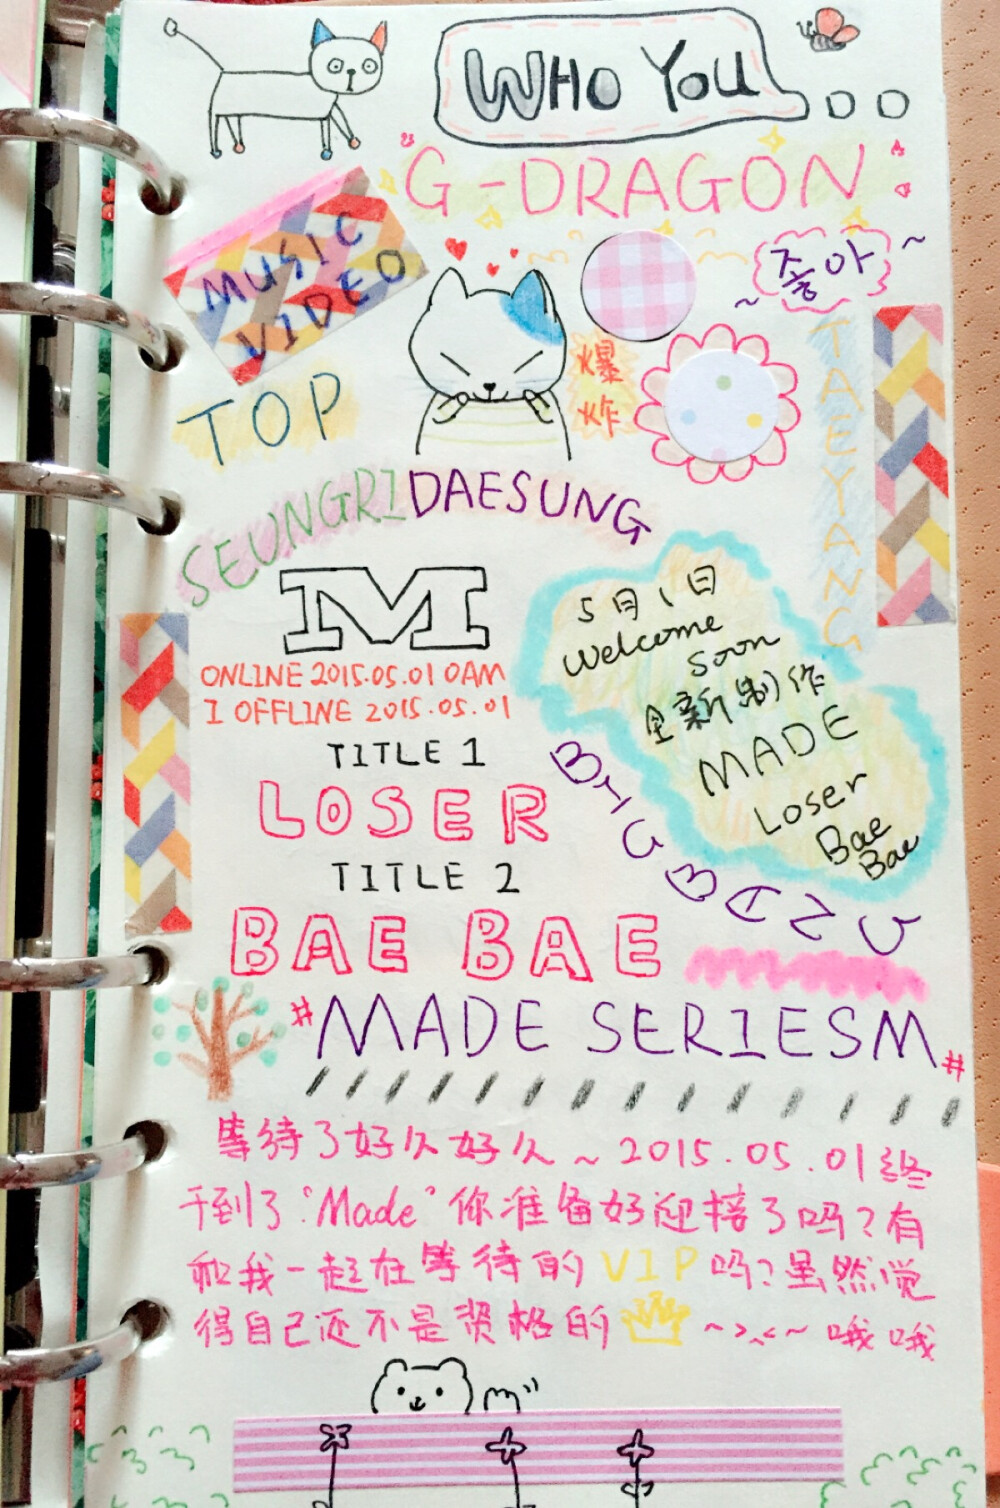 WHO YOU
G-DRAGON
MUSIC
VIDEO
좋아
TOP
爆
炸
TAEYANG
SEUNGRI DAESUNG
M
5月1日
Welcome
Soon
全新制作
MADE
Loser
Bae
Bae
ONLINE 2015.05.01 0AM
I OFFLINE 2015.05.01
TITLE 1
LOSER
TITLE 2
BAE BAE
BIGBANG
#MADE SERIESM#
等待了好久好久~2015.05.01终
于到了"Made"你准备好迎接了吗?有
和我一起在等待的VIP吗?虽然觉
得自己还不是资格的 ~>.<~ 哦哦